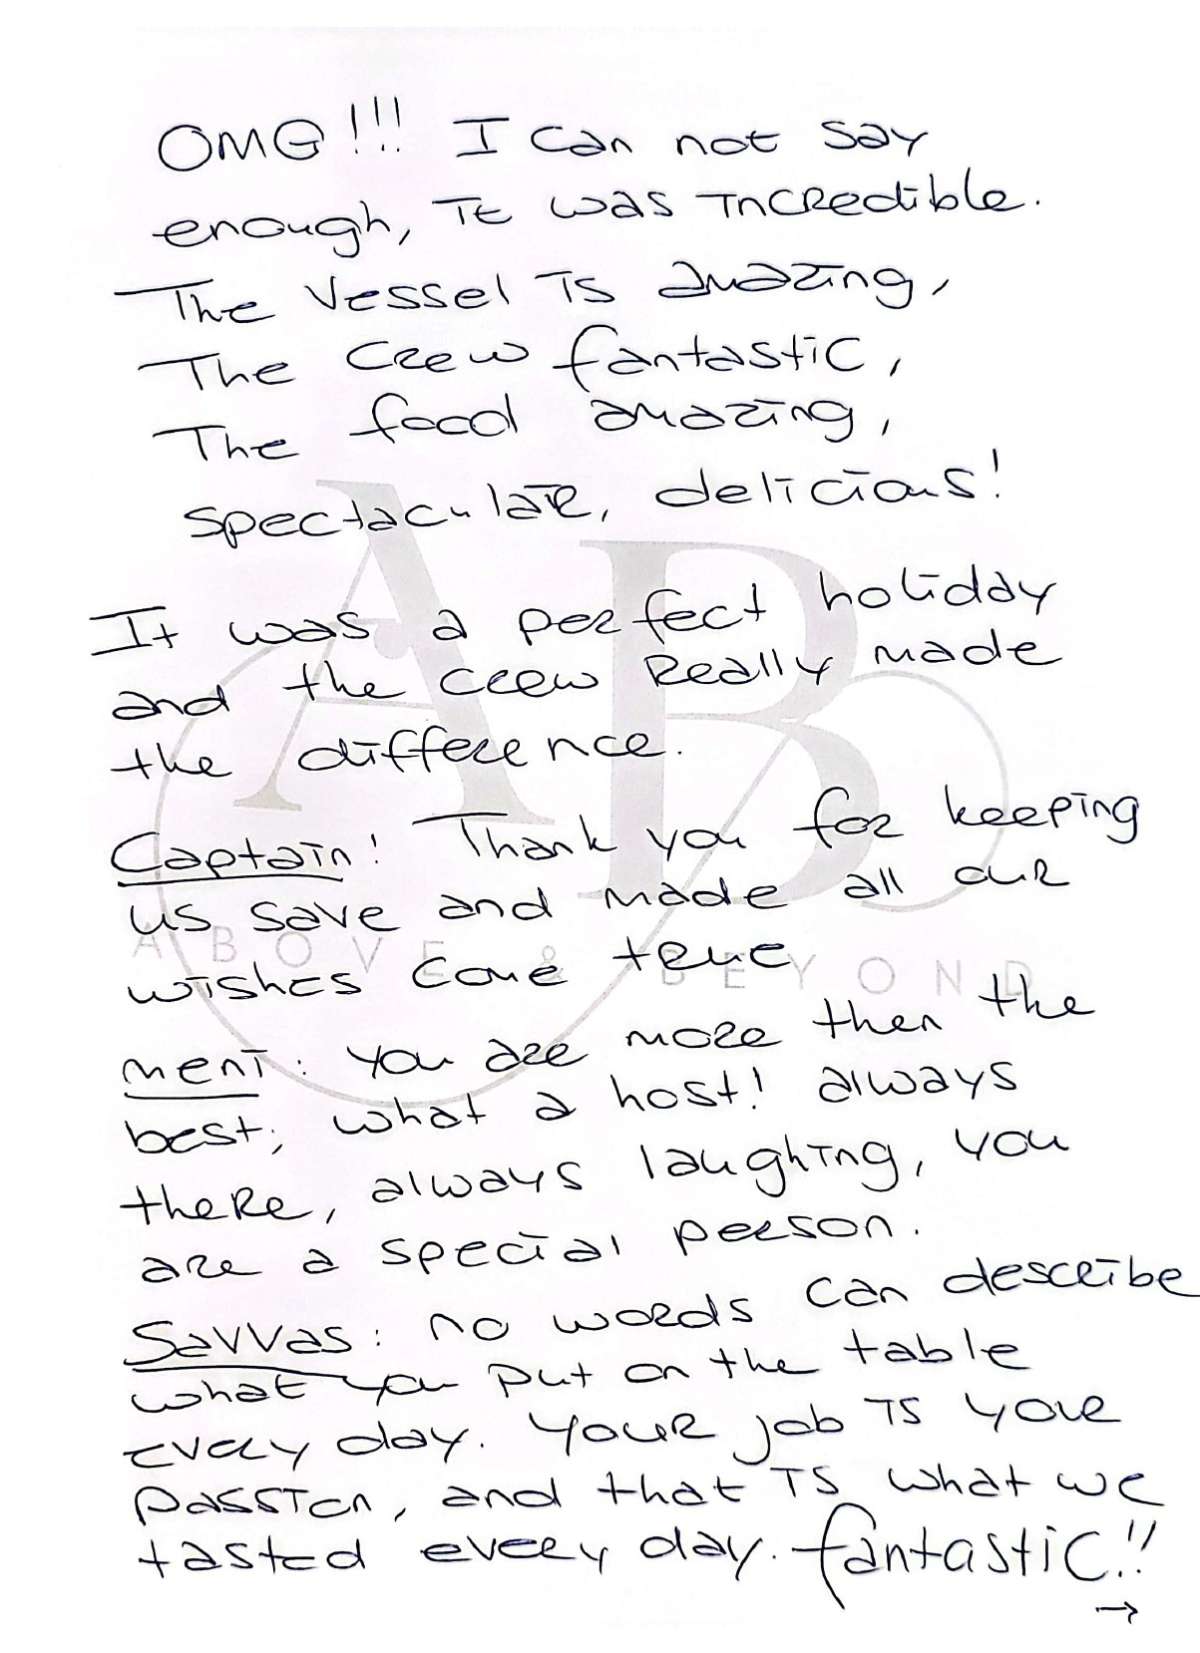 OMG!!! I can not say
enough, it was incredible.
The vessel is amazing,
The crew fantastic,
The food amazing,
spectaculair, delicious!
It was a perfect holiday
and the crew really made
the difference.
Captain! Thank you for keeping
us save and made all our
wishes come true
ABOVE & BEYOND
meni: you are more then the
best, what a host! always
there, always laughing, you
are a special person.
Savvas: no words can describe
what you put on the table
every day. Your job is your
passion, and that is what we
tasted every day. fantastic!!
→
AB